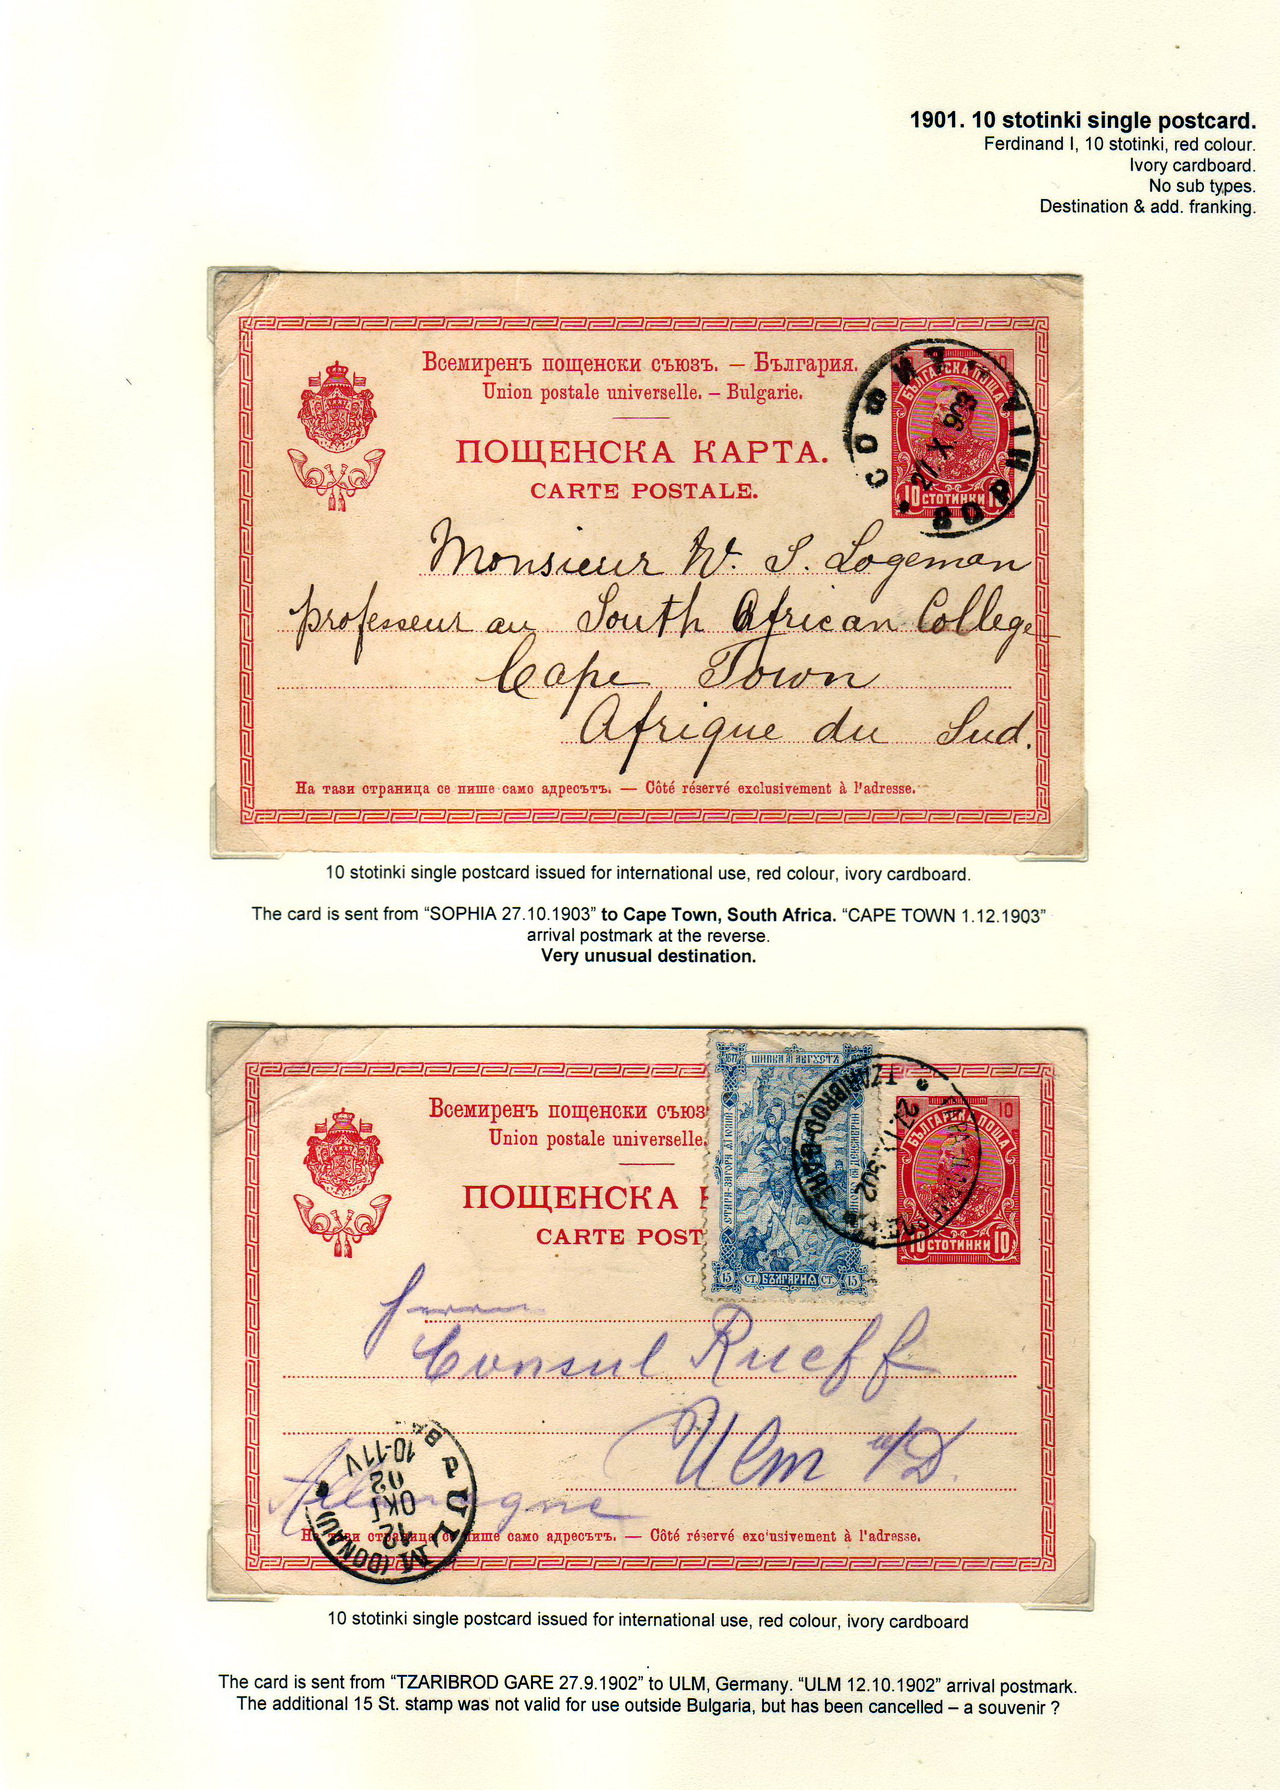 1901. 10 stotinki single postcard.
Ferdinand I, 10 stotinki, red colour.
Ivory cardboard.
No sub types.
Destination & add. franking.
Всемиренъ пощенски съюзъ. – България.
Union postale universelle. – Bulgarie.
ПОЩЕНСКА КАРТА.
CARTE POSTALE.
БЪЛГАРСКА ПОЩА
10 СТОТИНКИ 10
СОФИЯ
27.X.903
Monsieur W. S. Logeman
professeur au South African College
Cape Town
Afrique du Sud.
На тази страница се пише само адресътъ. — Côté réservé exclusivement à l'adresse.
10 stotinki single postcard issued for international use, red colour, ivory cardboard.
The card is sent from “SOPHIA 27.10.1903” to Cape Town, South Africa. “CAPE TOWN 1.12.1903”
arrival postmark at the reverse.
Very unusual destination.
Всемиренъ пощенски съюз
Union postale universelle.
ПОЩЕНСКА
CARTE POST
1877 ШИПКА АВГУСТЪ
15 СТ. БЪЛГАРИЯ СТ. 15
TZARIBROD-GARE
10
БЪЛГАРСКА ПОЩА
10 СТОТИНКИ 10
Herrn
Consul Rueff
Ulm a/D.
Allemagne
ULM (DONAU)
12
OKT
02
10-11V
На тази страница се пише само адресътъ. — Côté réservé exclusivement à l'adresse.
10 stotinki single postcard issued for international use, red colour, ivory cardboard
The card is sent from “TZARIBROD GARE 27.9.1902” to ULM, Germany. “ULM 12.10.1902” arrival postmark.
The additional 15 St. stamp was not valid for use outside Bulgaria, but has been cancelled – a souvenir ?